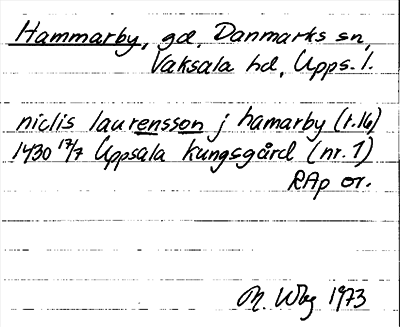 Hammarby, gd, Danmarks sn,
Vaksala hd, Upps. l.
niclis laurensson j hamarby (r.16)
1430 17/7 Uppsala kungsgård (nr. 1)
RAp or.
M. Wbg 1973